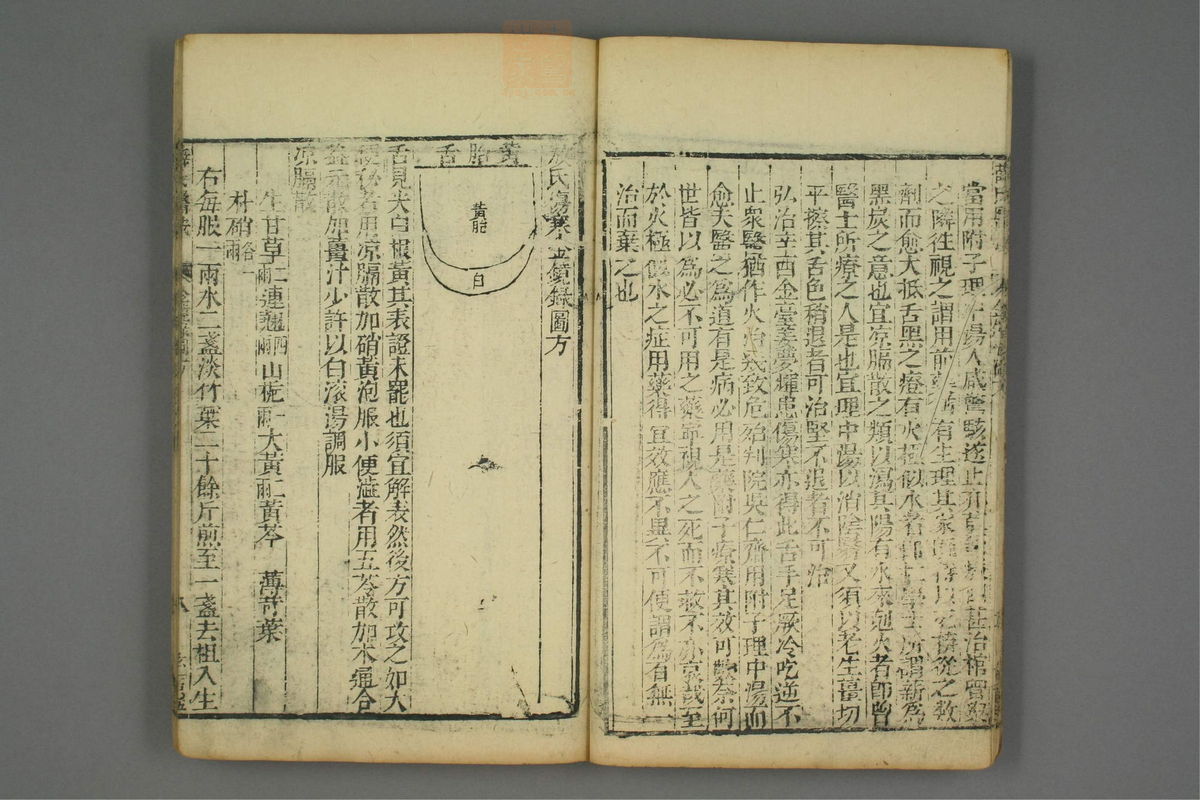 當用附子理中湯人咸驚駭遂止
之隣往視之謂用前藥有生理其家
劑而愈大抵舌黑之症有火極似水者
黑炭之意也宜凉膈散之類以瀉其陽有水來尅火者即
醫士所療之人是也宜理中湯以治陰翳又須以老生薑切
平擦其舌色稍退者可治堅不退者不可治
弘治辛酉金臺姜夢輝患傷寒亦得此舌手足厥冷吃逆不
止衆醫猶作火治幾致危殆判院吳仁齋用附子理中湯而
愈夫醫之為道有是病必用是藥附子療寒其效可數奈何
世皆以為必不可用之藥寧視人之死而不救不亦哀哉至
於火極似水之症用藥得宜效應不異不可便謂為百無一
治而棄之也
敖氏傷寒金鏡錄圖方
黃胎舌
黃胎
白
舌見尖白根黃其表證未罷也須宜解表然後方可攻之如大
便秘者用凉膈散加硝黃泡服小便澁者用五苓散加木通合
益元散加薑汁少許以白滾湯調服
凉膈散
生甘草二兩連翹四兩山梔一兩大黃二兩黃芩 薄荷葉
朴硝各一兩
右每服一兩水二盞淡竹葉二十餘斤煎至一盞去柤入生